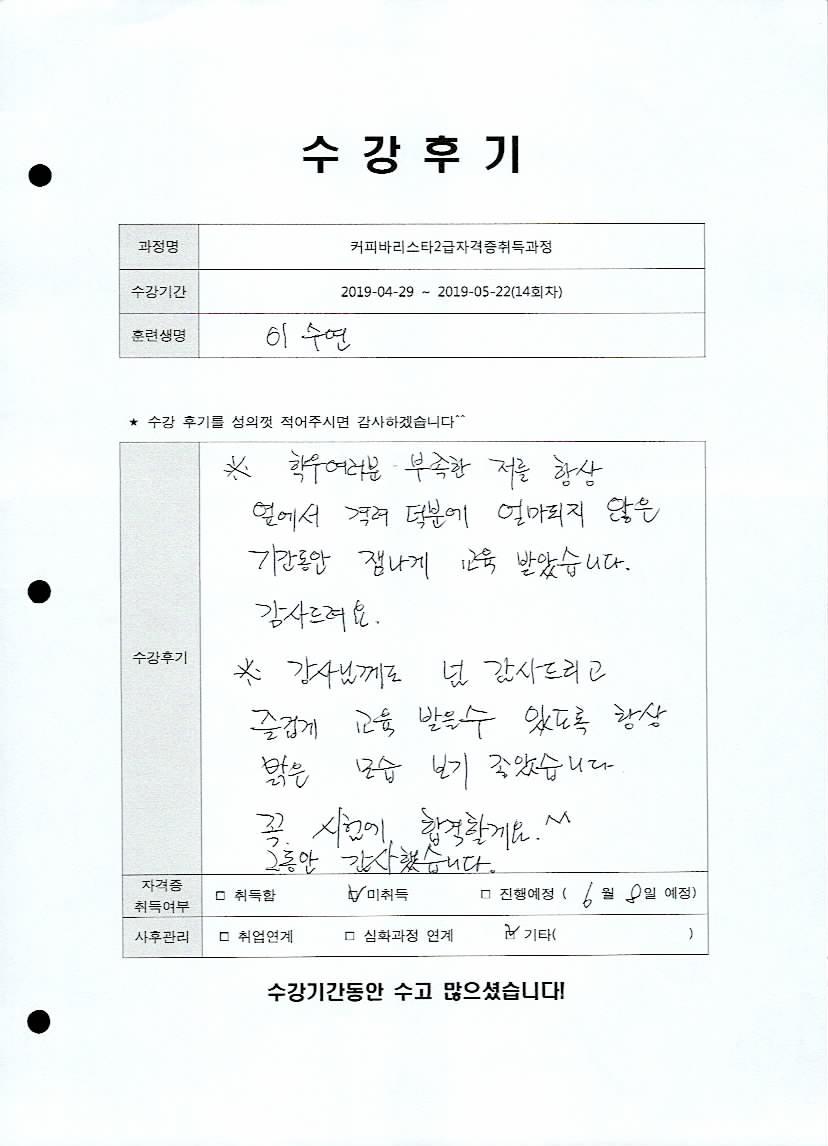 수 강 후 기
과정명 커피바리스타2급자격증취득과정
수강기간 2019-04-29 ~ 2019-05-22(14회차)
훈련생명 이 수연
★ 수강 후기를 성의껏 적어주시면 감사하겠습니다^^
수강후기
※ 학우여러분 부족한 저를 항상
옆에서 격려 덕분에 얼마되지 않은
기간동안 잼나게 교육 받았습니다.
감사드려요.
※ 강사님께도 넘 감사드리고
즐겁게 교육 받을수 있도록 항상
밝은 모습 보기 좋았습니다
꼭 시험에 합격할게요.^^
그동안 감사했습니다.
자격증 취득여부 □ 취득함 ☑ 미취득 □ 진행예정 ( 6 월 8 일 예정)
사후관리 □ 취업연계 □ 심화과정 연계 ☑ 기타( )
수강기간동안 수고 많으셨습니다!